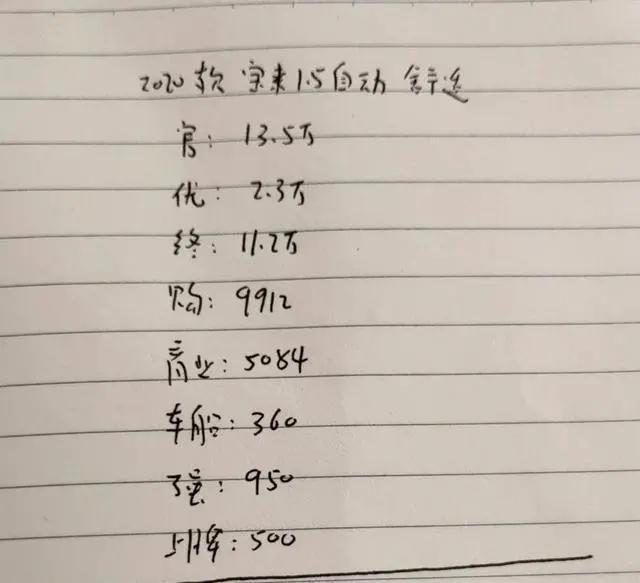 2020款 宝来1.5自动 舒适
官: 13.5万
优: 2.3万
终: 11.2万
购: 9912
商业: 5084
车船: 360
强: 950
上牌: 500